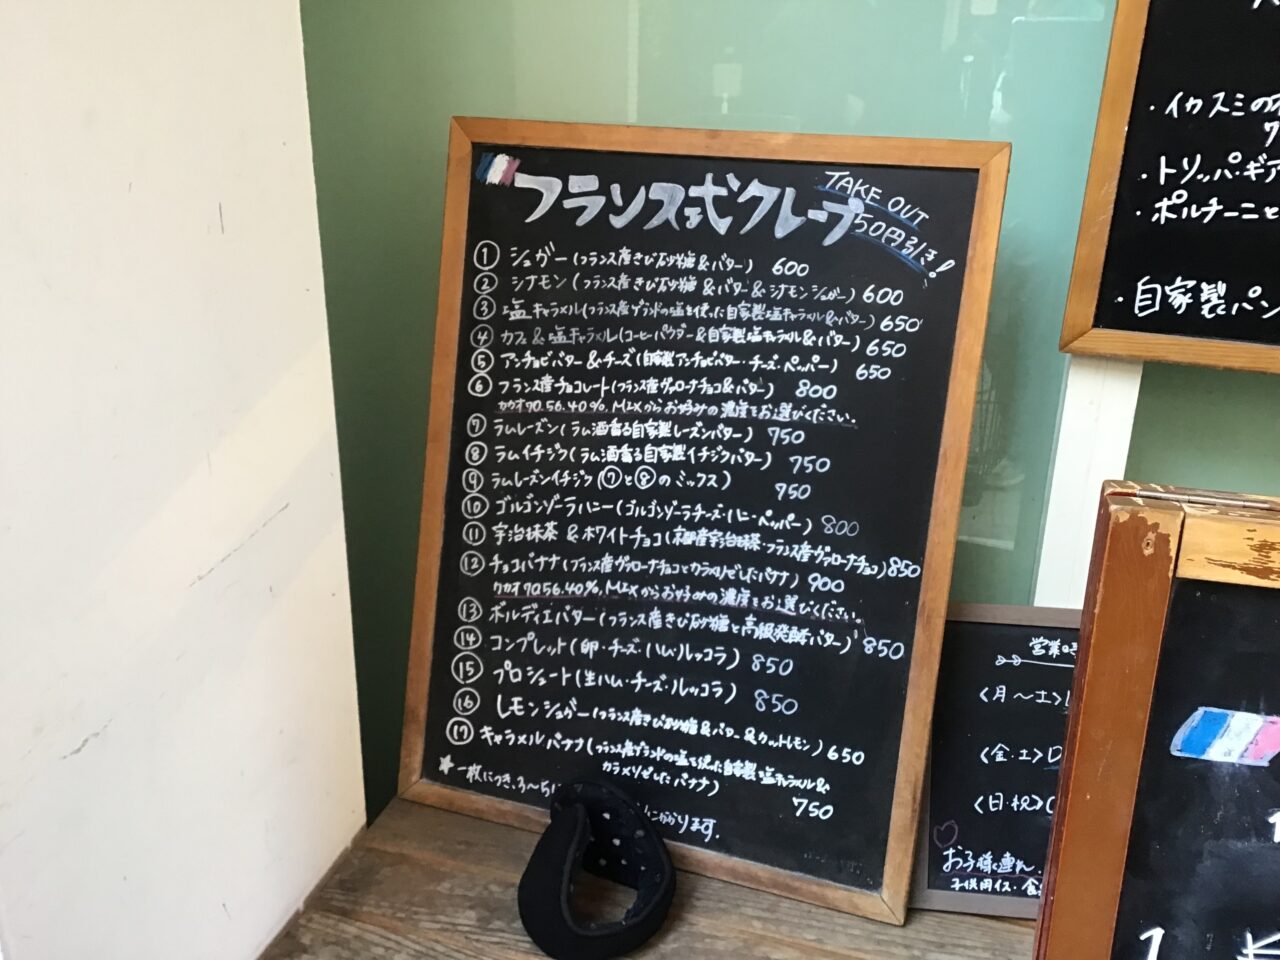 フランス式クレープ
TAKE OUT
50円引き!
① シュガー(フランス産きび砂糖&バター) 600
② シナモン(フランス産きび砂糖&バター&シナモンシュガー) 600
③ 塩キャラメル(フランス産ゲランドの塩を使った自家製塩キャラメル&バター) 650
④ カフェ&塩キャラメル(コーヒーパウダー&自家製塩キャラメル&バター) 650
⑤ アンチョビバター&チーズ(自家製アンチョビバター・チーズ・ペッパー) 650
⑥ フランス産チョコレート(フランス産ヴァローナチョコ&バター) 800
カカオ70.56.40%.MIXからお好みの濃度をお選びください。
⑦ ラムレーズン(ラム酒香る自家製レーズンバター) 750
⑧ ラムイチジク(ラム酒香る自家製イチジクバター) 750
⑨ ラムレーズンイチジク(⑦と⑧のミックス) 750
⑩ ゴルゴンゾーラハニー(ゴルゴンゾーラチーズ・ハニー・ペッパー) 800
⑪ 宇治抹茶&ホワイトチョコ(宇治抹茶・フランス産ヴァローナチョコ) 850
⑫ チョコバナナ(フランス産ヴァローナチョコとカラメリゼしたバナナ) 900
カカオ70.56.40%.MIXからお好みの濃度をお選びください。
⑬ ボルディエバター(フランス産きび砂糖と高級発酵バター) 850
⑭ コンプレット(卵・チーズ・ハム・ルッコラ) 850
⑮ プロシュート(生ハム・チーズ・ルッコラ) 850
⑯ レモンシュガー(フランス産きび砂糖&バター&カットレモン) 650
⑰ キャラメルバナナ(フランス産ゲランドの塩を使った自家製塩キャラメル&
カラメリゼしたバナナ) 750
★一枚につき、3〜5 かかります.
・イカスミの
・トリッパ・ギア
・ポルチーニと
・自家製パン
営業
<月〜土>
<金・土>D
<日・祝>
お子様連れ
子供用イス・食
1